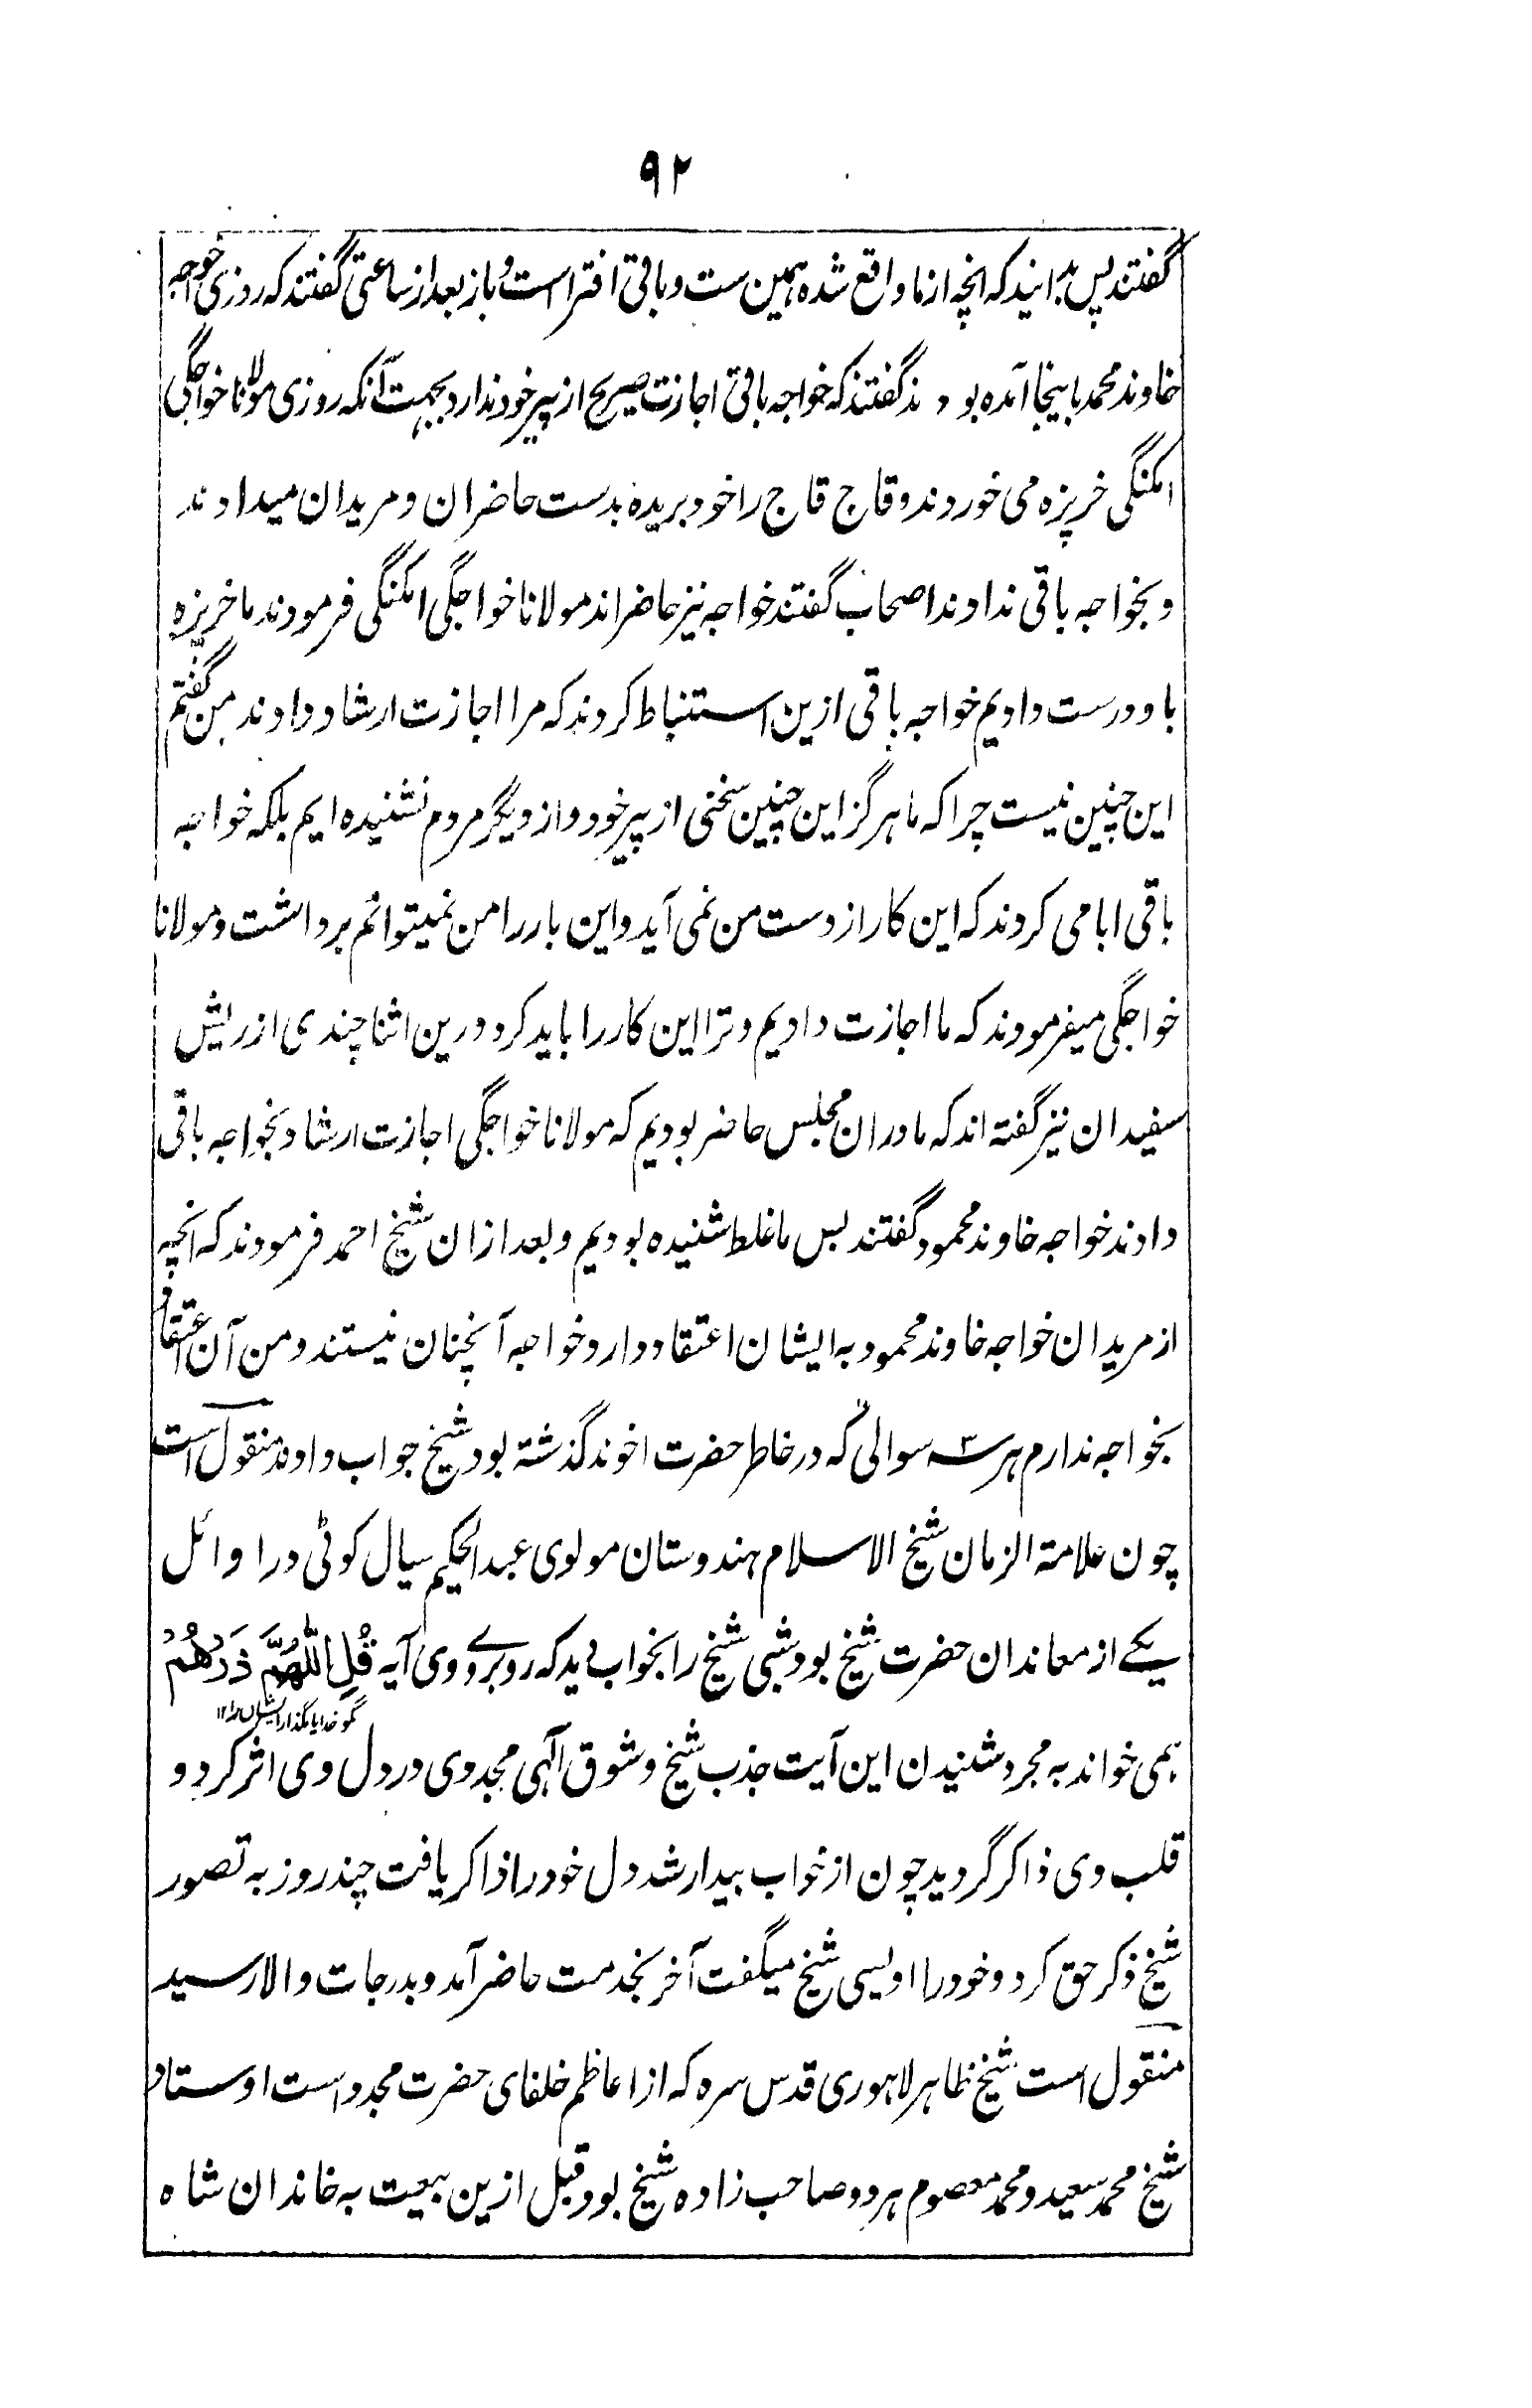 ۹۲
گفتند پس بدانید که انچه از ما واقع شده همین ست و باقی افترا است و باز بعد از ساعتی گفتند که روزی خواجه
خاوند محمد باینجا آمده بودند گفتند که خواجه باقی اجازت صریح از پیر خود ندارد بجهت آنکه روزی مولانا خواجگی
امکنگی خرپزه می خوردند و قاج قاج را خود بریده بدست حاضران و مریدان میدادند
و بخواجه باقی ندادند اصحاب گفتند خواجه نیز حاضر اند مولانا خواجگی امکنگی فرمودند ما خرپزه
باو درست دادیم خواجه باقی ازین استنباط کردند که مرا اجازت ارشاد دادند من گفتم
این چنین نیست چرا که ما هرگز این چنین سخنی از پیر خود و از دیگر مردم نشنیده ایم بلکه خواجه
باقی ابا می کردند که این کار از دست من نمی آید و این بار را من نمیتوانم برداشت و مولانا
خواجگی میفرمودند که ما اجازت دادیم و ترا این کار را باید کرد درین اثنا چندی از ریش
سفیدان نیز گفته اند که ما دران مجلس حاضر بودیم که مولانا خواجگی اجازت ارشاد بخواجه باقی
دادند خواجه خاوند محمود گفتند بس ما غلط شنیده بودیم و بعد ازان شیخ احمد فرمودند که انچه
از مریدان خواجه خاوند محمود به ایشان اعتقاد دارد خواجه آنچنان نیستند و من آن اعتقاد
بخواجه ندارم هر سه سوالی که در خاطر حضرت اخوند گذشته بود شیخ جواب داد منقول است
چون علامة الزمان شیخ الاسلام هندوستان مولوی عبد الحکیم سیال کوٹی در اوائل
یکے از معاندان حضرت شیخ بود شبی شیخ را بخواب دید که روبروے وی آیه قُلِ اللّٰهُمَّ ذَرْهُمْ
گو خدا یا بگذار ایشان را ۱۲
همی خواند به مجرد شنیدن این آیت جذب شیخ و شوق آلهی مجددی در دل وی اثر کرد و
قلب وی ذاکر گردید چون از خواب بیدار شد دل خود را ذاکر یافت چند روز به تصور
شیخ ذکر حق کرد و خود را اویسی شیخ میگفت آخر بخدمت حاضر آمد و بدرجات والا رسید
منقول است شیخ طاهر لاهوری قدس سره که از اعاظم خلفای حضرت مجدد است اوستاد
شیخ محمد سعید و محمد معصوم هر دو صاحب زاده شیخ بود قبل ازین بیعت به خاندان شاه